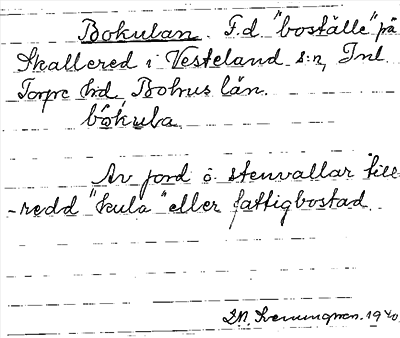 Bokulan F.d. "boställe" på
Skallered i Vesteland s:n, Inl.
Torpe hd, Bohus län.
bókula
Av jord o. stenvallar till
-redd "kula" eller fattigbostad.
1940